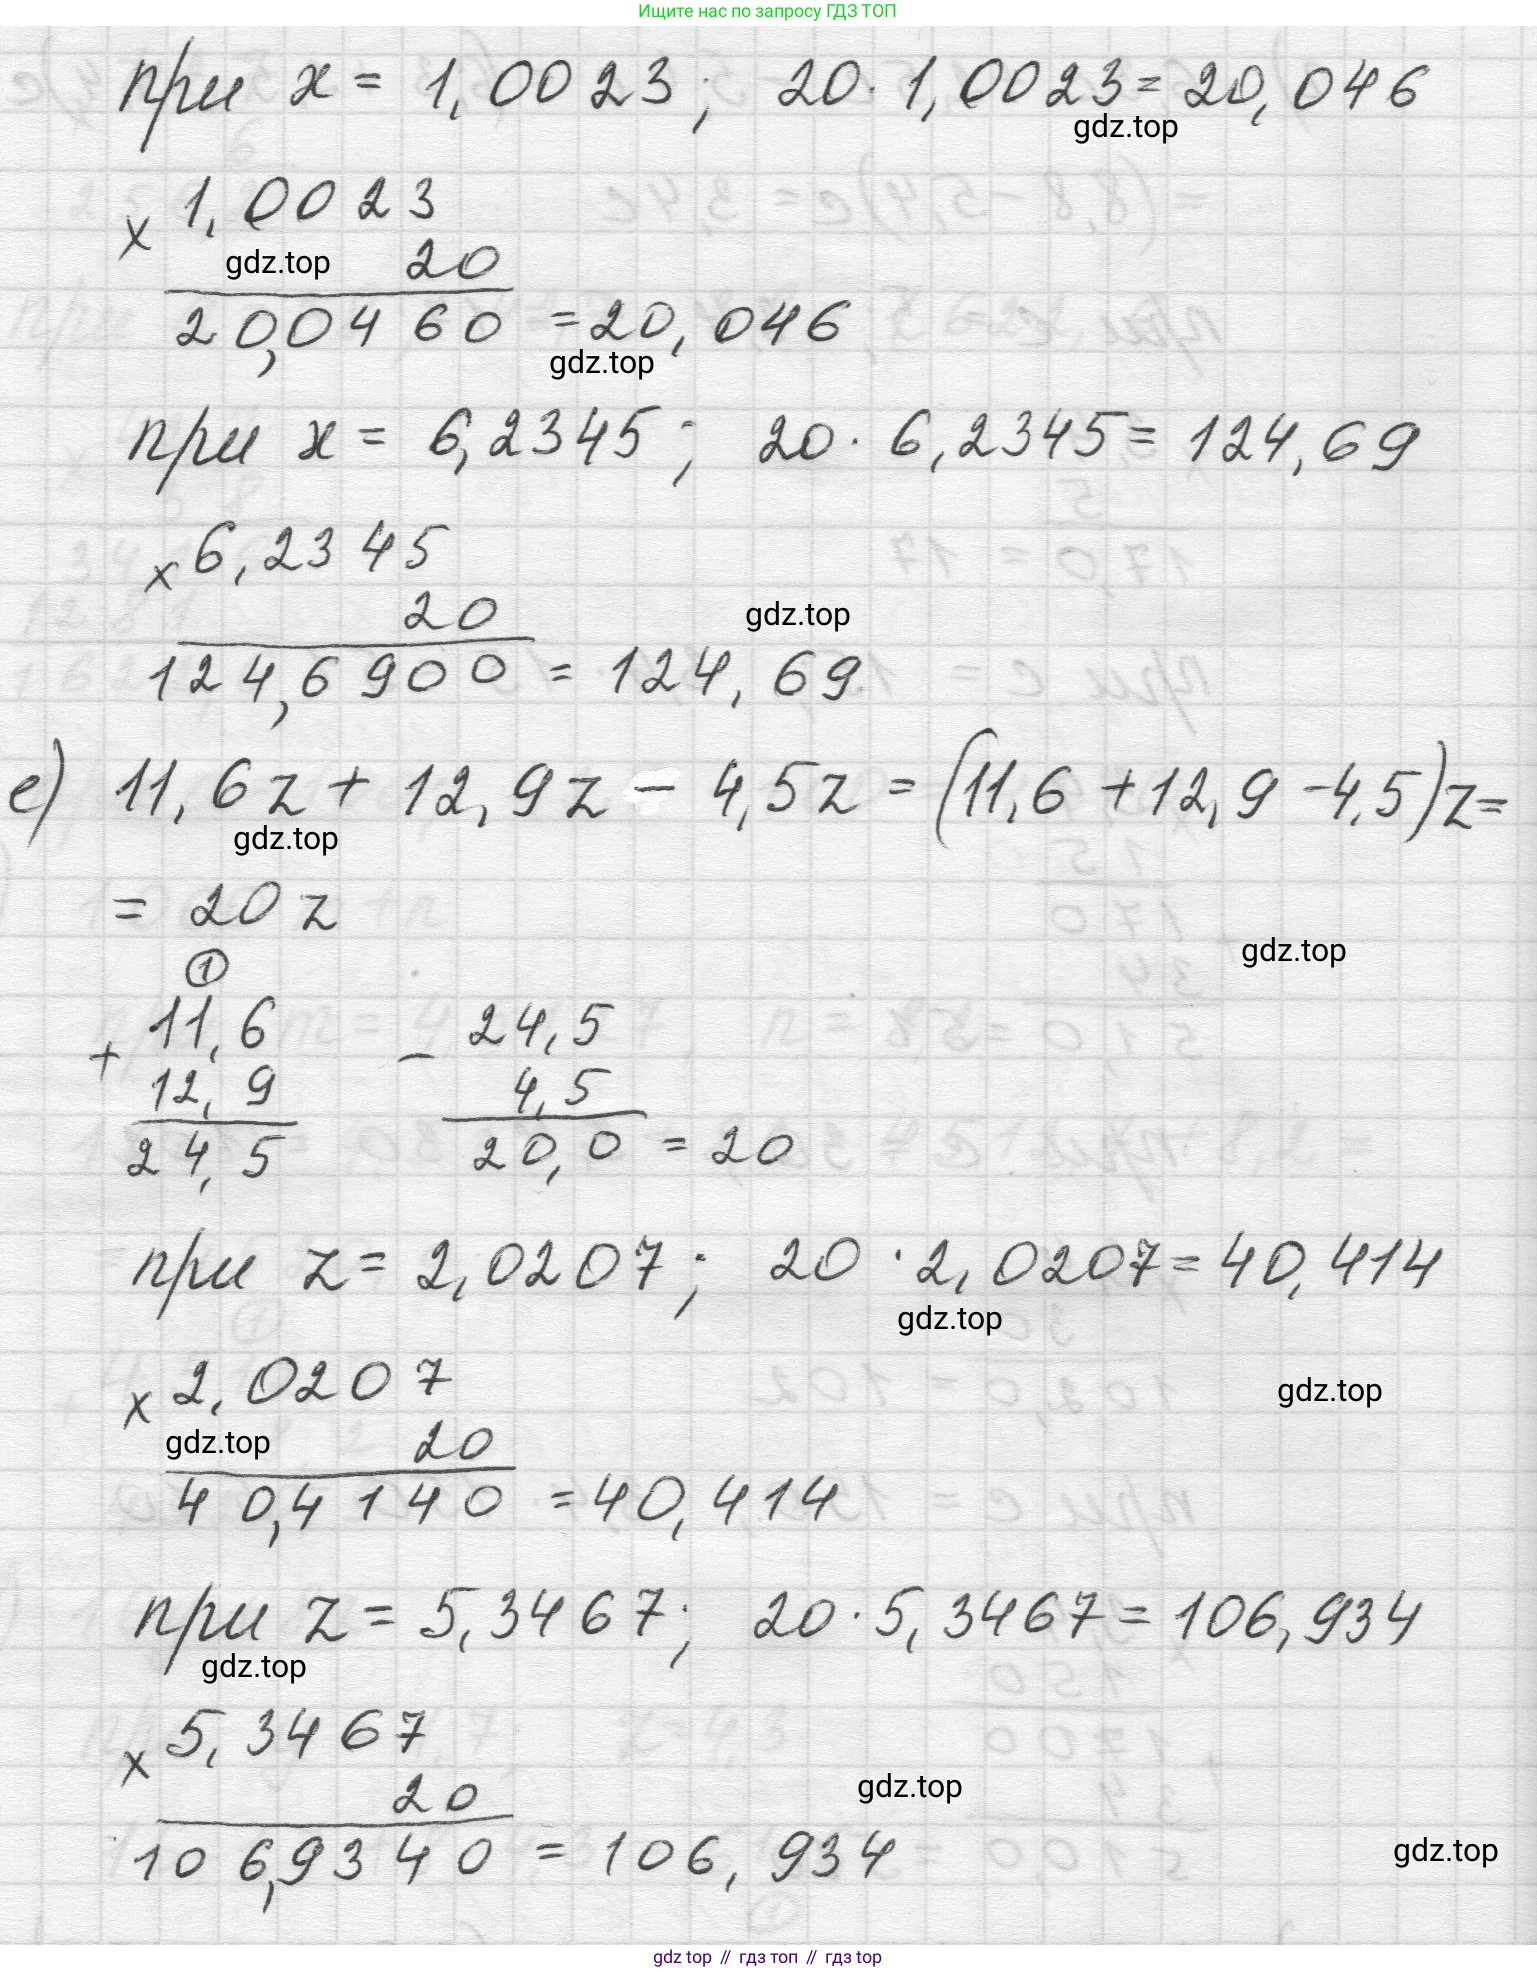 Ищите нас по запросу ГДЗ ТОП
при x = 1,0023; 20 · 1,0023 = 20,046
gdz.top
× 1,0023
gdz.top 20
20,0460 = 20,046
gdz.top
при x = 6,2345; 20 · 6,2345 = 124,69
× 6,2345
20 gdz.top
124,6900 = 124,69
е) 11,6z + 12,9z - 4,5z = (11,6 + 12,9 - 4,5)z =
gdz.top
= 20z
gdz.top
1
+ 11,6 - 24,5
12,9 4,5
24,5 20,0 = 20
при z = 2,0207; 20 · 2,0207 = 40,414
gdz.top
× 2,0207 gdz.top
gdz.top 20
40,4140 = 40,414
при z = 5,3467; 20 · 5,3467 = 106,934
gdz.top
× 5,3467
20 gdz.top
106,9340 = 106,934 gdz.top
gdz top // гдз топ // гдз top